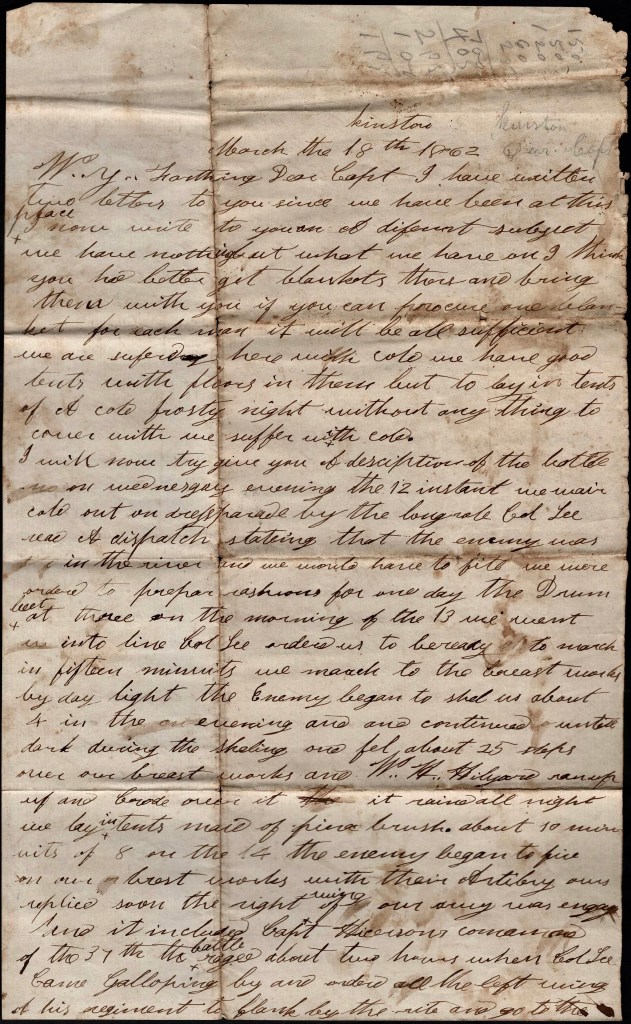 Kinston
Kinston
March the 18th 1862
Dear Capt
W. Y. Farthing Dear Capt I have written
two letters to you since we have been at this
place
I now write to you on A diferent subject
+ we have nothing but what we have on I think
you had better get blankets thare and bring
them with you if you can procure one blan-
ket for each man it will be all sufficient
we are sufering here with cold we have good
tents with floors in them but to lay in tents
of A cold frosty night without any thing to
cover with we suffer with cold.
I will now try give you A desciption of the battle
on wednesday evening the 12 instant we wair
cald out on dress parade by the long role Col Lee
read A dispatch stateing that the enemy was
in the river and we would have to fite we were
ordered to prepar rashions for one day the Drum
beet
at three on the morning of the 13 we went
in into line Col Lee ordered us to be ready to march
in fifteen minuits we march to the breast works
by day light the Enemy began to shel us about
4 in the evening and continued untill
dark during the sheling one fel about 25 steps
over our breast works and W. H. Hilyard run up
it raind all night
we lay in tents maid of pine brush. about 10 min
uits of 8 on the 14 the enemy began to fire
on our brest works with their Artilery ours
replied soon the right wing of our army was engag
it included Capt comand
of the 37th the battle raged about two hours when Col Lee
Came Galloping by and orderd all the left wing
of his regiment to flank by the rite and go to the